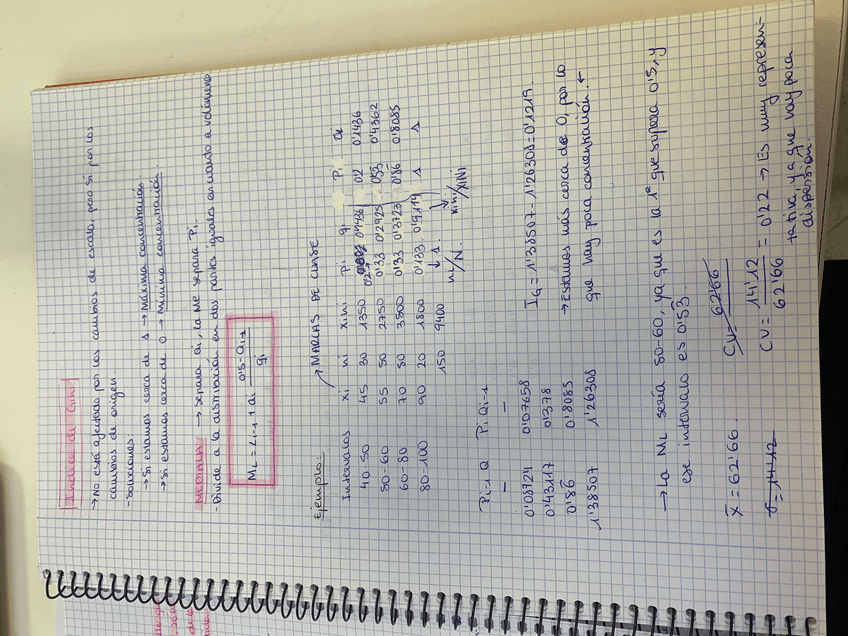 Indice de Gini
→ No está afectado por los cambios de escala, pero sí por los
cambios de origen.
- Soluciones:
→ Si estamos cerca de 1 → Máxima concentración.
→ Si estamos cerca de 0 → Mínima concentración.
MEDIALA → Separa Qi, la Me separa Pi.
- Divide a la distribución en dos partes iguales en cuanto a volúmenes
ML = Li-1 + ai 0'5 - Qi-1 / qi
Ejemplo: → MARCAS DE CLASE
Intervalos xi ni xini Pi qi Pi Qi
40-50 45 30 1350 0'2 0'1436 0'2 0'1436
50-60 55 50 2750 0'33 0'2925 0'53 0'4362
60-80 70 50 3500 0'33 0'3723 0'86 0'8085
80-100 90 20 1800 0'133 0'1914 1 1
150 9400 ↓ 1. ↓
ni/N. xini/XiNi
Pi-1 Q Pi Qi-1
- -
0'08724 0'07658
0'43117 0'378
0'86 0'8085
1'38507 1'26308
IG = 1'38507 - 1'26308 = 0'1219.
→ Estamos más cerca de 0, por lo
que hay poca concentración.
→ La ML sería 50-60, ya que es la 1ª que supera 0'5, y
ese intervalo es 0'53.
x = 62'66. CV = 62'66
σ = 14'12 CV = 14'12 / 62'66 = 0'22 → Es muy represen-
tativa, ya que hay poca
dispersión.